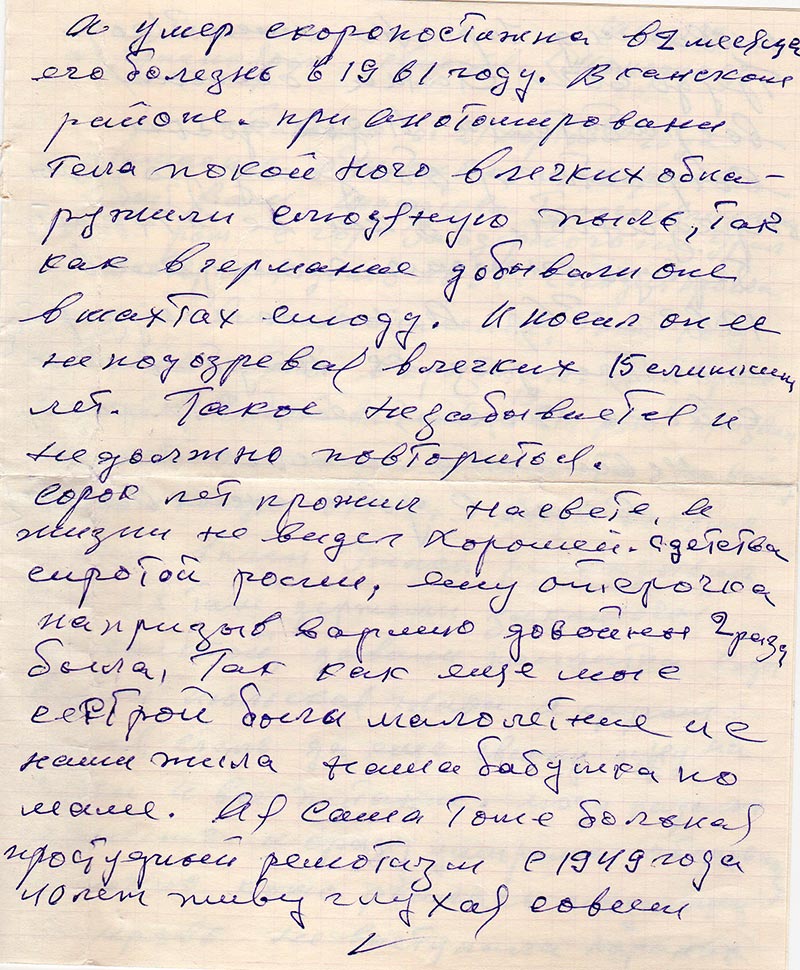 А умер скоропостижна в 2 месяца
его болезнь в 1961 году. В канском
районе. при анотомировани
тела покойного в легких обна-
ружили слюдяную пыль, так
как в германие добывали оне
в шахтах слюду. И носил он ее
не подозревая в легких 15 слишним
лет. Такое незабывается и
недолжно повториться.
сорок лет прожил на свете, и
жизни не видел хорошей. с детства
сиротой росли, ему отсрочка
на призыв вармию довойны 2 раза
была, так как еще мы с
сестрой были малолетние и с
нами жила наша бабушка по
маме. Ая сама тоже больная
простудный ремотизм с 1949 года
10 лет живу глухая совсем